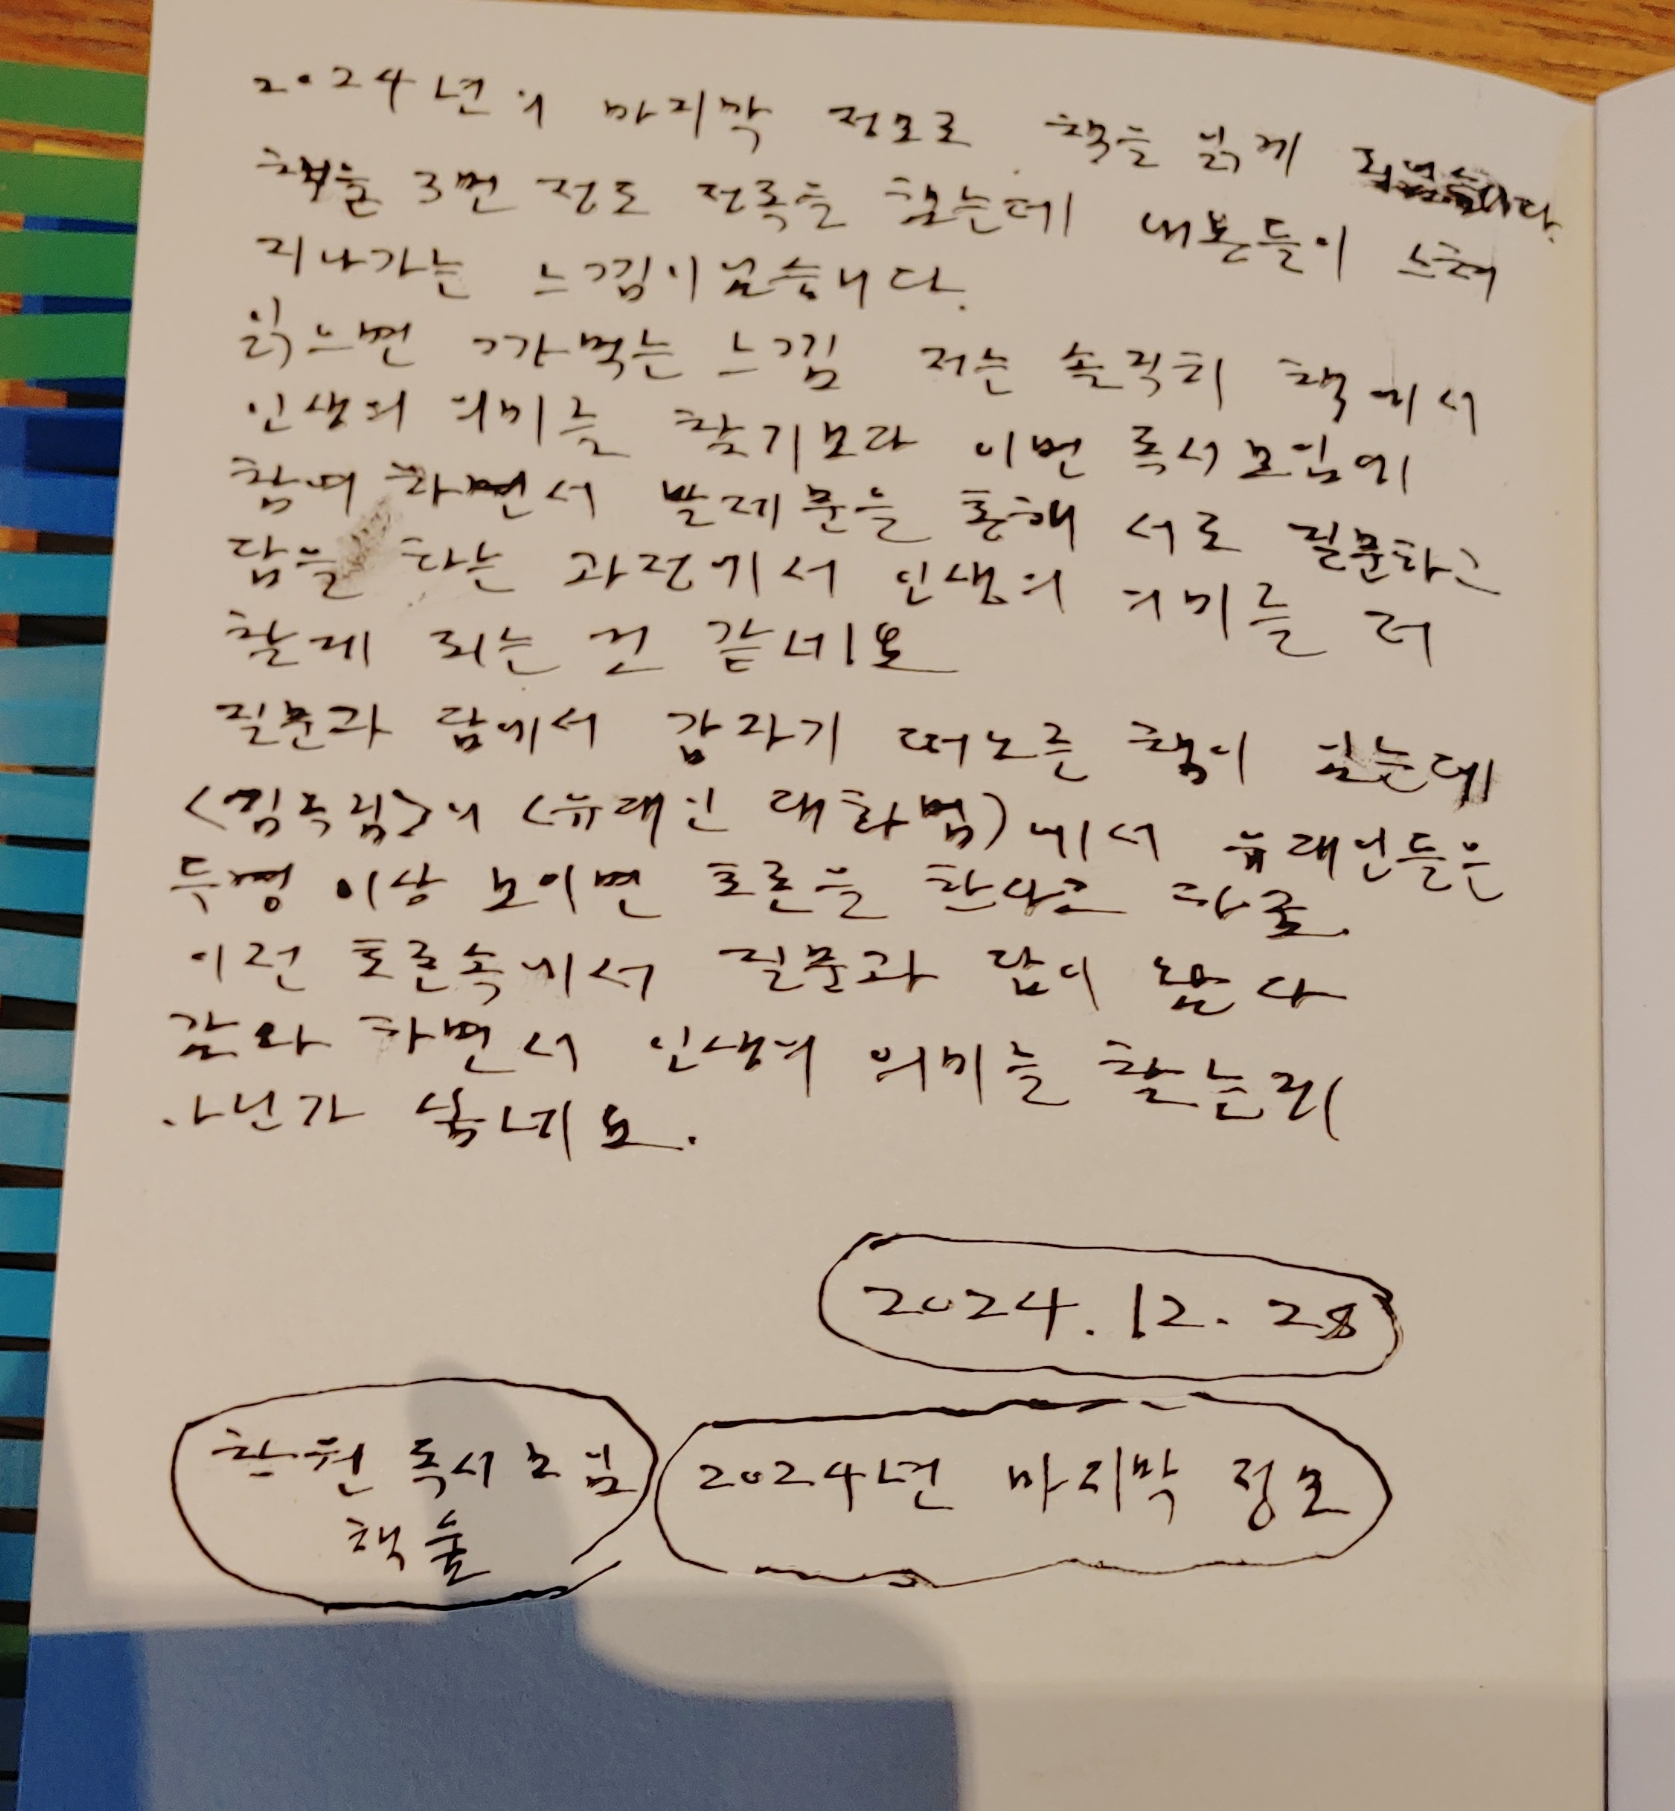 2024년의 마지막 정모로 책을 읽게 되었습니다.
책을 3번 정도 정독을 했는데 내본들이 스쳐
지나가는 느낌이었습니다.
읽으면 까먹는 느낌 저는 솔직히 책에서
인생의 의미를 찾기보다 이번 독서모임에
참여하면서 발제문을 통해 서로 질문하고
답을 하는 과정에서 인생의 의미를 더
찾게 되는 것 같네요
질문과 답에서 갑자기 떠오른 책이 있는데
<김욱림>의 <유대인 대화법>에서 유대인들은
두명 이상 모이면 토론을 한다고 하죠.
이런 토론속에서 질문과 답이 왔다
갔다 하면서 인생의 의미를 찾는게
아닌가 싶네요.
2024.12.28
창원 독서모임
책술
2024년 마지막 정모